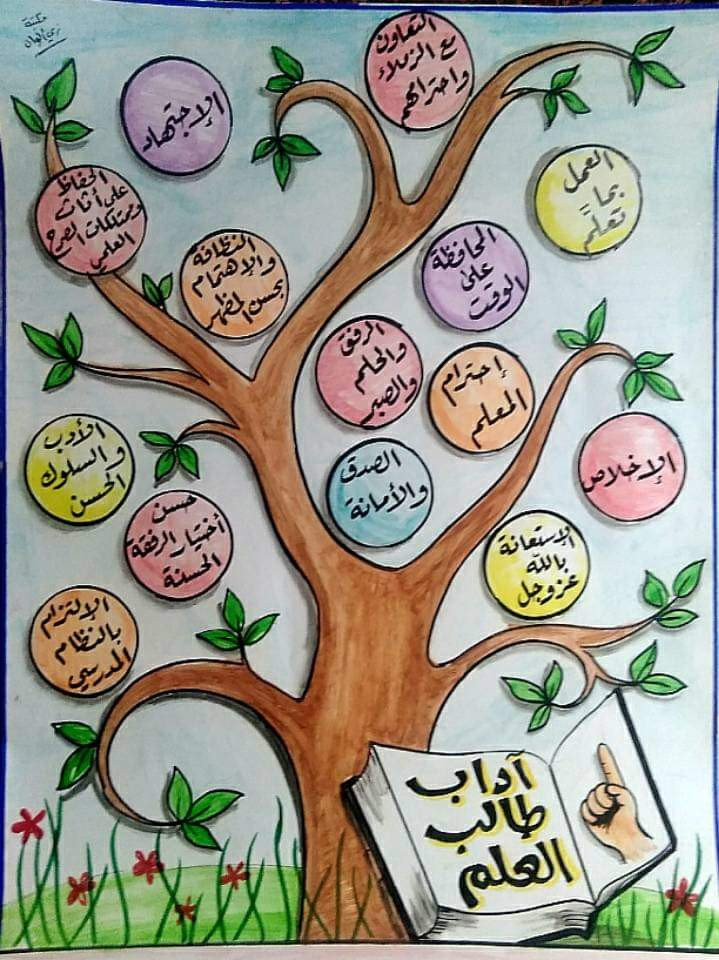 مكتبة
آداب
طالب
العلم
التعاون
مع الزملاء
واحترامهم
الإجتهاد
العمل
بما
تعلّم
الحفاظ
على أثاث
وممتلكات الصرح
العلمي
النظافة
والاهتمام
بحسن المظهر
المحافظة
على
الوقت
الرفق
والحلم
والصبر
إحترام
المعلم
الأدب
والسلوك
الحسن
الصدق
والأمانة
الإخلاص
حسن
أختيار الرفقة
الحسنة
الإستعانة
بالله
عز وجل
الإلتزام
بالنظام
المدرسي